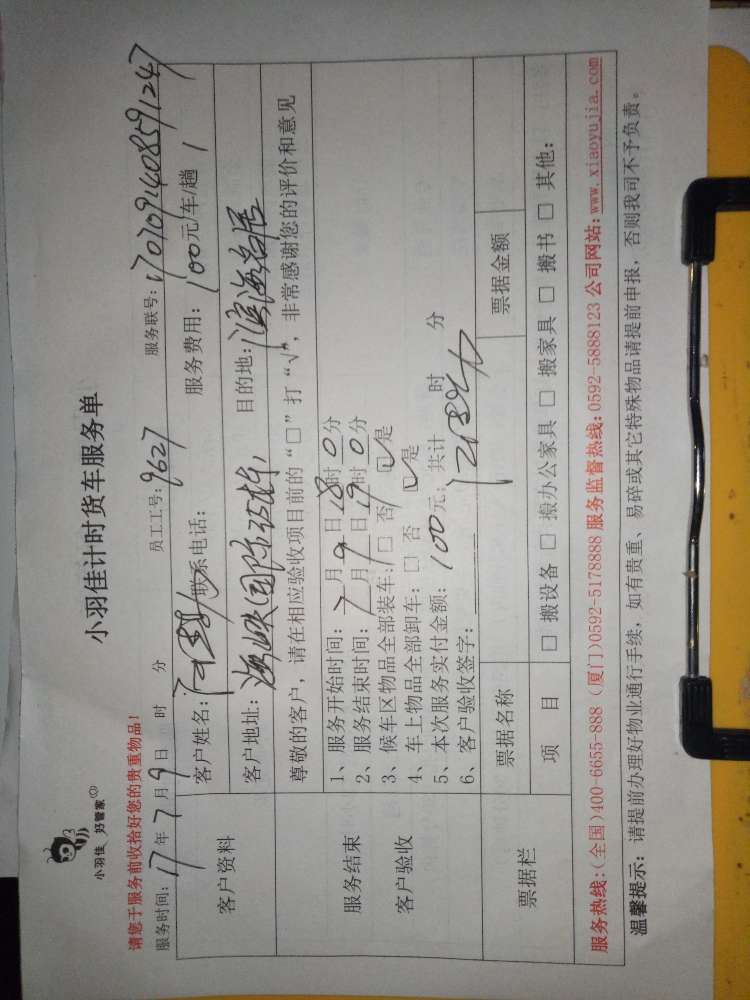 小羽佳 好管家
小羽佳计时货车服务单
请您于服务前收拾好您的贵重物品!
服务时间: 17 年 7 月 9 日 时 分 员工工号: 9627 服务联号: 1707091408591247
客户资料
客户姓名: 联系电话: 服务费用: 100元/车/趟 1
客户地址: 海峡国际社区 目的地: 滨海名居
尊敬的客户, 请在相应验收项目前的“□”打“√”, 非常感谢您的评价和意见
服务结束
客户验收
1、服务开始时间: 7 月 9 日 18 时 0 分
2、服务结束时间: 7 月 9 日 19 时 0 分
3、候车区物品全部装车: □ 否 ☑ 是
4、车上物品全部卸车: □ 否 ☑ 是
5、本次服务实付金额: 100 元; 共计 时 分
6、客户验收签字:
票据栏
票据名称 票据金额
项 目 □ 搬设备 □ 搬办公家具 □ 搬家具 □ 搬书 □ 其他:
服务热线:(全国)400-6655-888 (厦门)0592-5178888 服务监督热线:0592-5888123 公司网站:www.xiaoyujia.com
温馨提示: 请提前办理好物业通行手续, 如有贵重、易碎或其它特殊物品请提前申报, 否则我司不予负责。